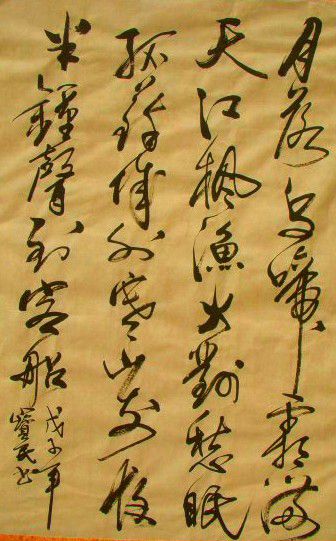 月落烏啼霜滿
天江楓漁火對愁眠
姑蘇城外寒山寺夜
半鐘聲到客船
戊子年
寶民書